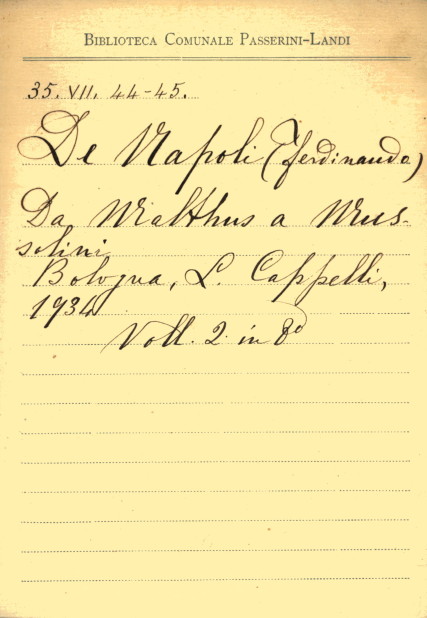 BIBLIOTECA COMUNALE PASSERINI-LANDI
35. VII. 44-45.
De Napoli (Ferdinando)
Da Malthus a Mus-
solini
Bologna, L. Cappelli,
1934
Voll. 2. in 8º